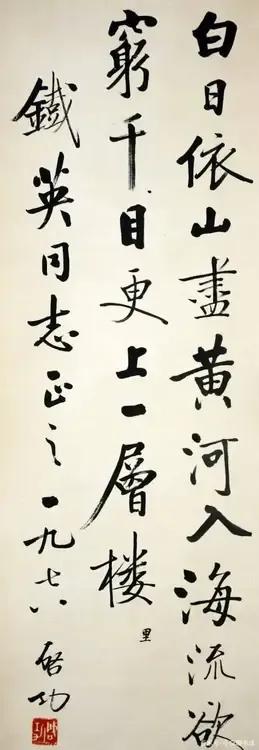 白日依山盡黄河入海流欲
窮千目更上一層楼
里
鐵英同志正之一九七八 啓功